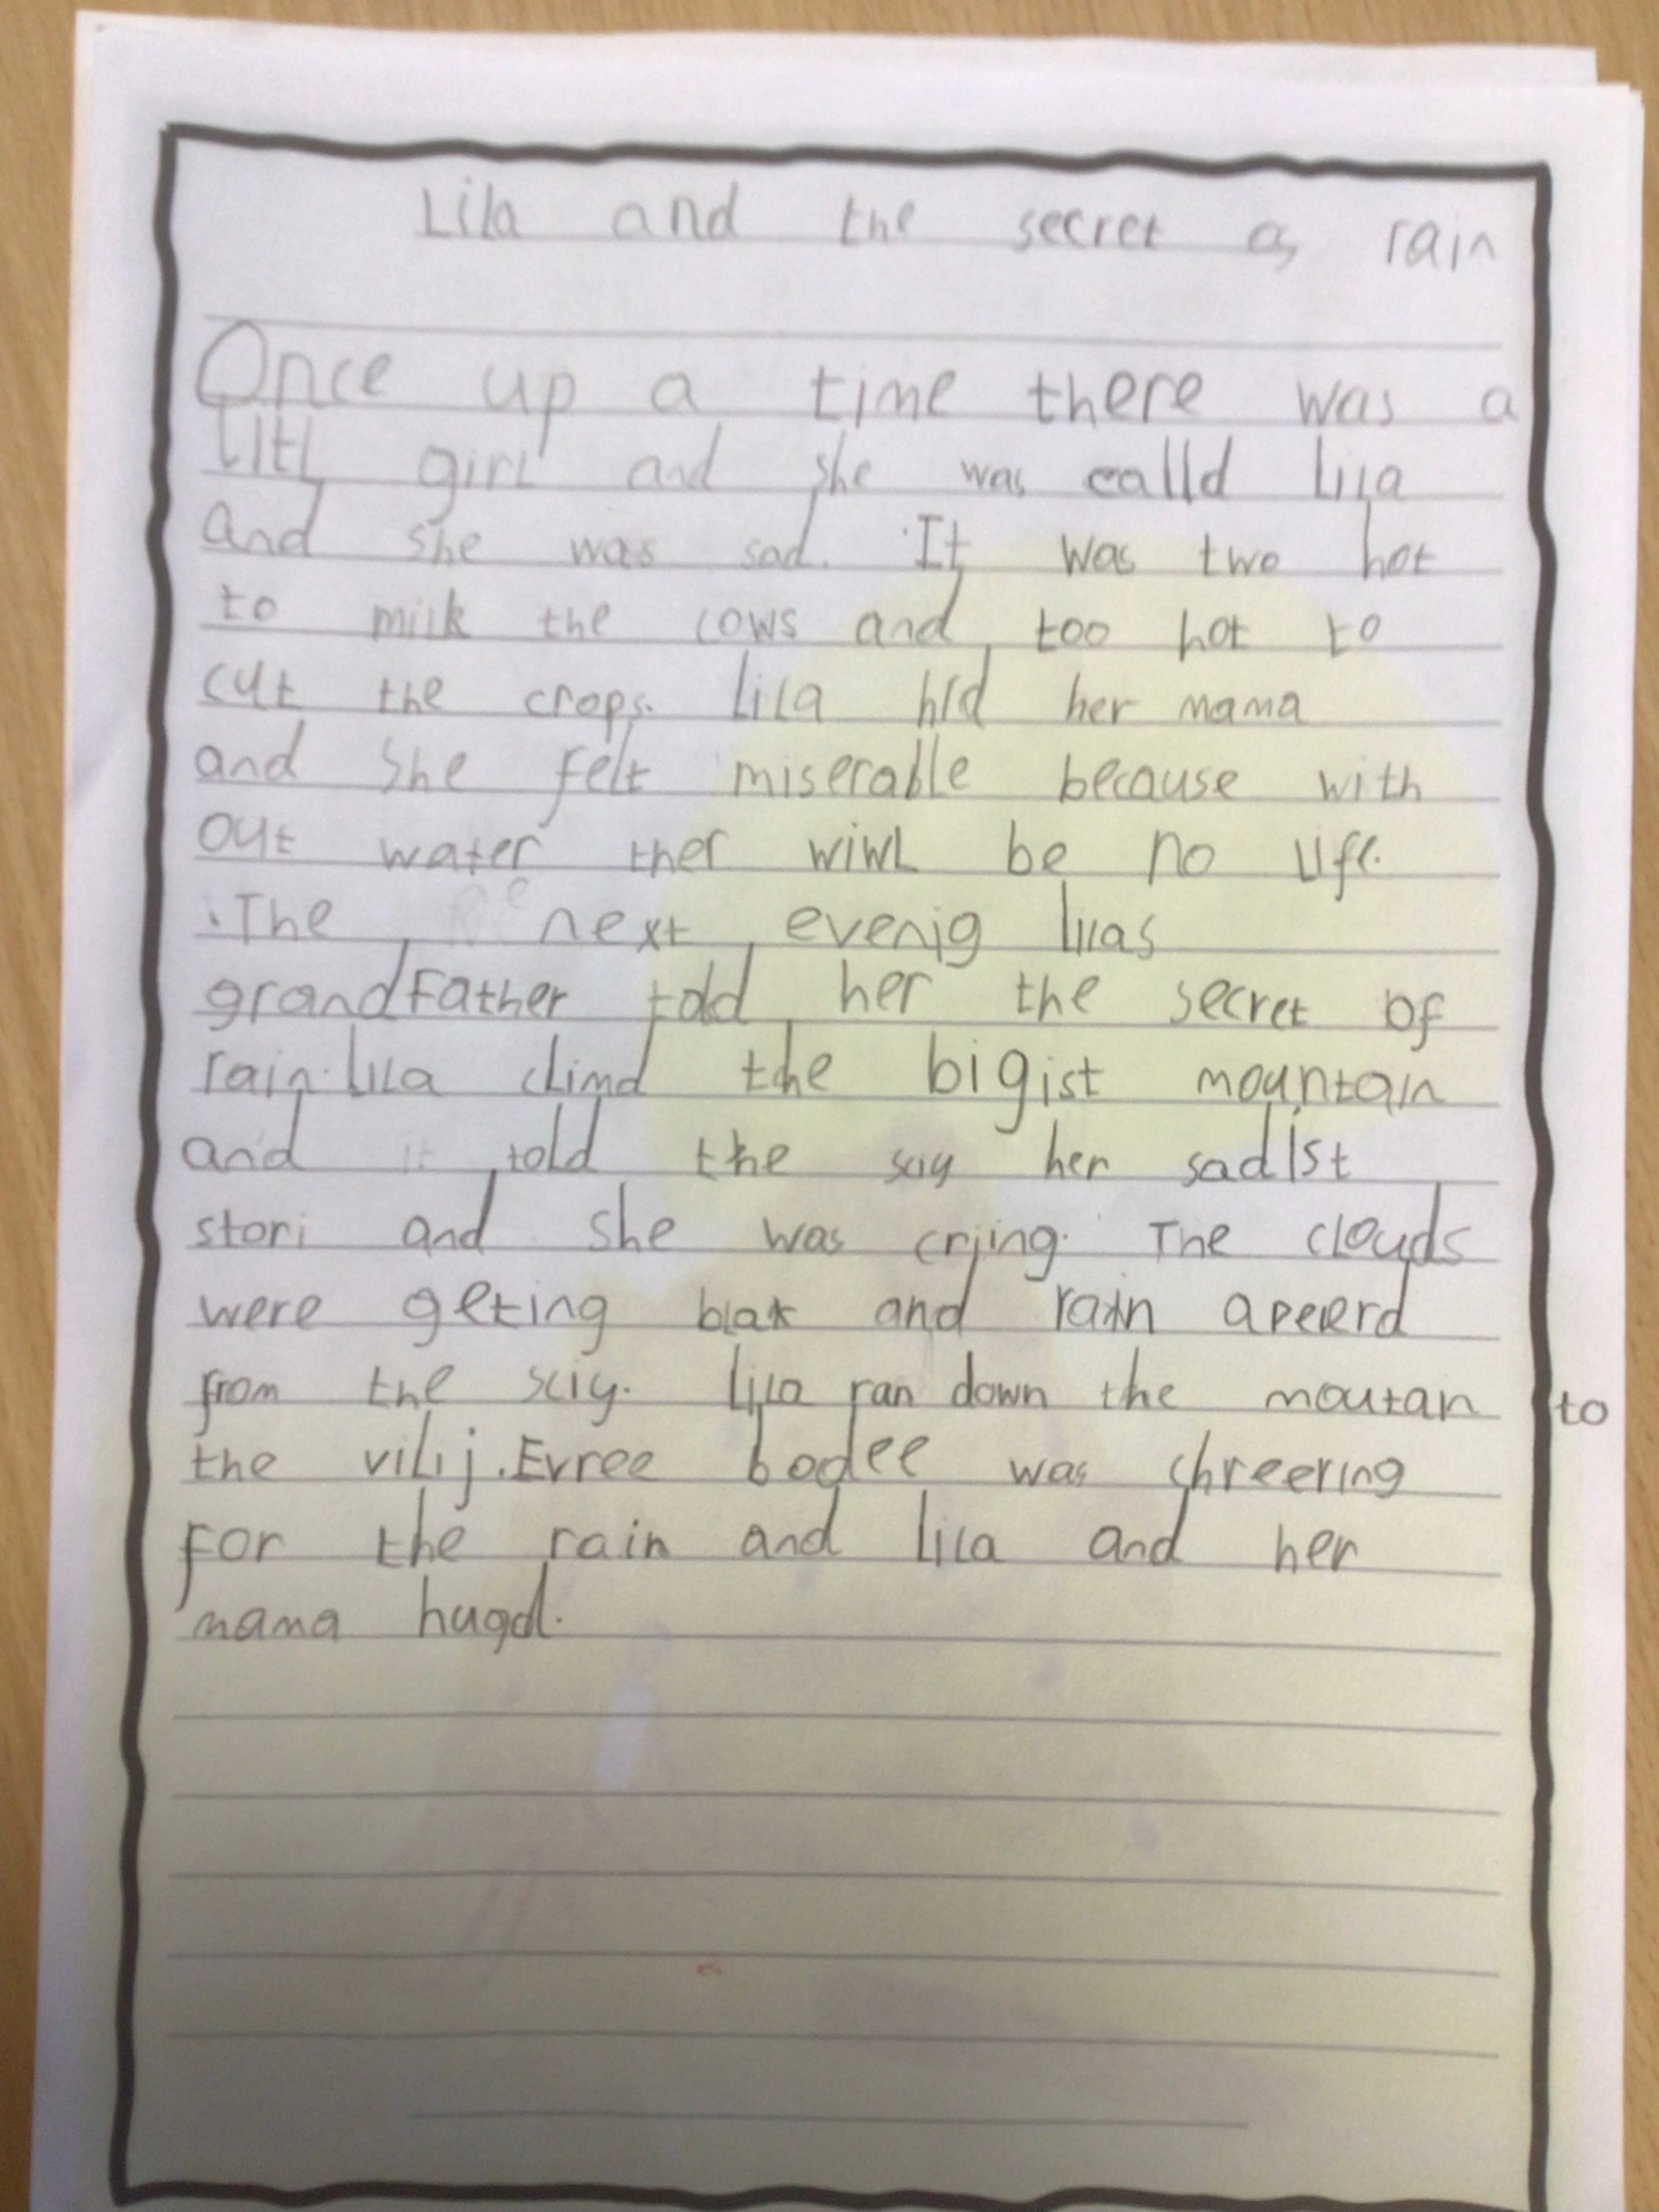 Lila and the secret of rain
Once up a time there was a
litl girl and she was calld lila
and she was sad. It was two hot
to milk the cows and too hot to
cut the crops. lila hld her mama
and she felt miserable because with
out water ther wiwl be no life.
.The next evenig lilas
grandFather told her the secret of
rain. lila climd the bigist mountain
and told the sciy her sadist
stori and she was crjing. The clouds
were geting blak and rain apeerd
from the sciy. lila ran down the moutan to
the vilij. Evree bodee was chreering
for the rain and lila and her
mama hugd.